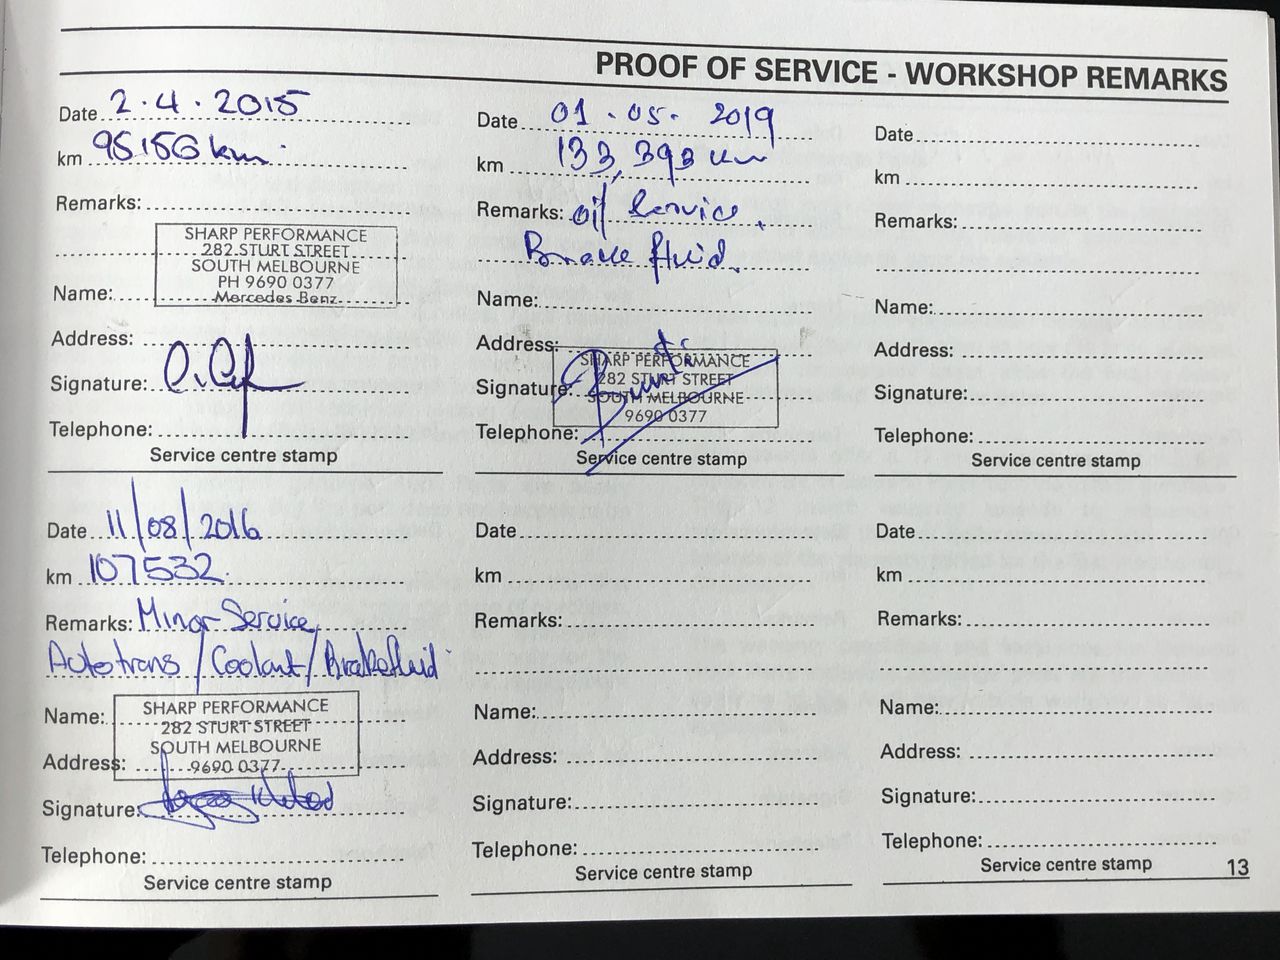 PROOF OF SERVICE - WORKSHOP REMARKS
Date 2.4.2015
km 95150 km
Remarks:
SHARP PERFORMANCE
282 STURT STREET
SOUTH MELBOURNE
PH 9690 0377
Name: Mercedes Benz
Address:
Signature:
Telephone:
Service centre stamp
Date 11/08/2016
km 107532
Remarks: Minor Service
Autotrans / Coolant / Brakefluid
SHARP PERFORMANCE
Name:
282 STURT STREET
SOUTH MELBOURNE
Address: 9690 0377
Signature:
Telephone:
Service centre stamp
Date 01.05.2019
km 133,393 km
Remarks: oil Service,
Brake fluid.
Name:
Address:
SHARP PERFORMANCE
Signature: 282 STURT STREET
SOUTH MELBOURNE
9690 0377
Telephone:
Service centre stamp
Date
km
Remarks:
Name:
Address:
Signature:
Telephone:
Service centre stamp
Date
km
Remarks:
Name:
Address:
Signature:
Telephone:
Service centre stamp
Date
km
Remarks:
Name:
Address:
Signature:
Telephone:
Service centre stamp
13